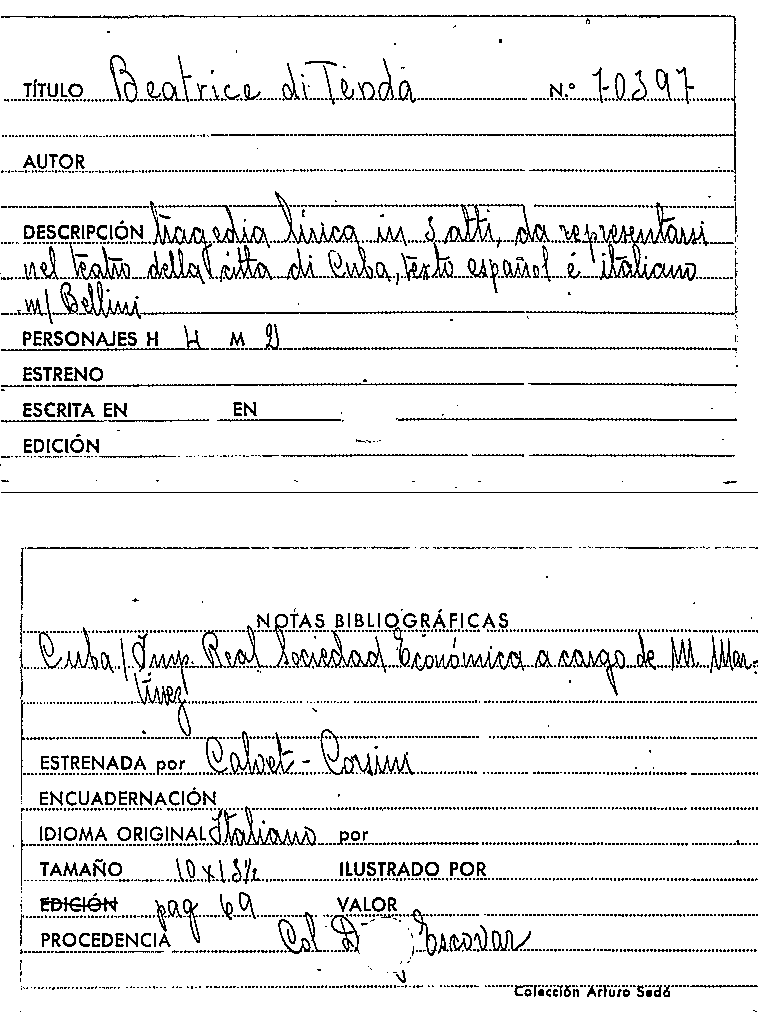 TÍTULO Beatrice di Tenda N.º 70397
AUTOR
DESCRIPCIÓN tragedia lírica in 3 atti, da representarsi
nel teatro della citta di Cuba, texto español é italiano
m/ Bellini
PERSONAJES H 4 M 2
ESTRENO
ESCRITA EN EN
EDICIÓN
NOTAS BIBLIOGRÁFICAS
Cuba / Imp. Real Sociedad Económica a cargo de M. Mar-
tínez
ESTRENADA por Calvet - Corsini
ENCUADERNACIÓN
IDIOMA ORIGINAL Italiano por
TAMAÑO 10 x 13½ ILUSTRADO POR
EDICIÓN pag 69 VALOR
PROCEDENCIA Col D Escovar
Colección Arturo Sedó